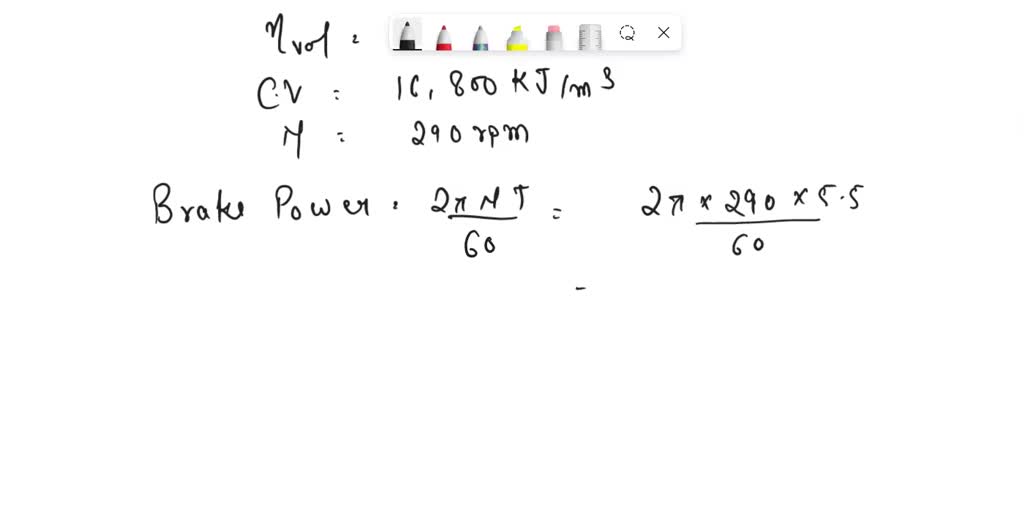 ηvol =
C.V = 16,800 KJ/m³
N = 290 rpm
Brake Power = 2πNT/60 = 2π × 290 × 5.5/60
=